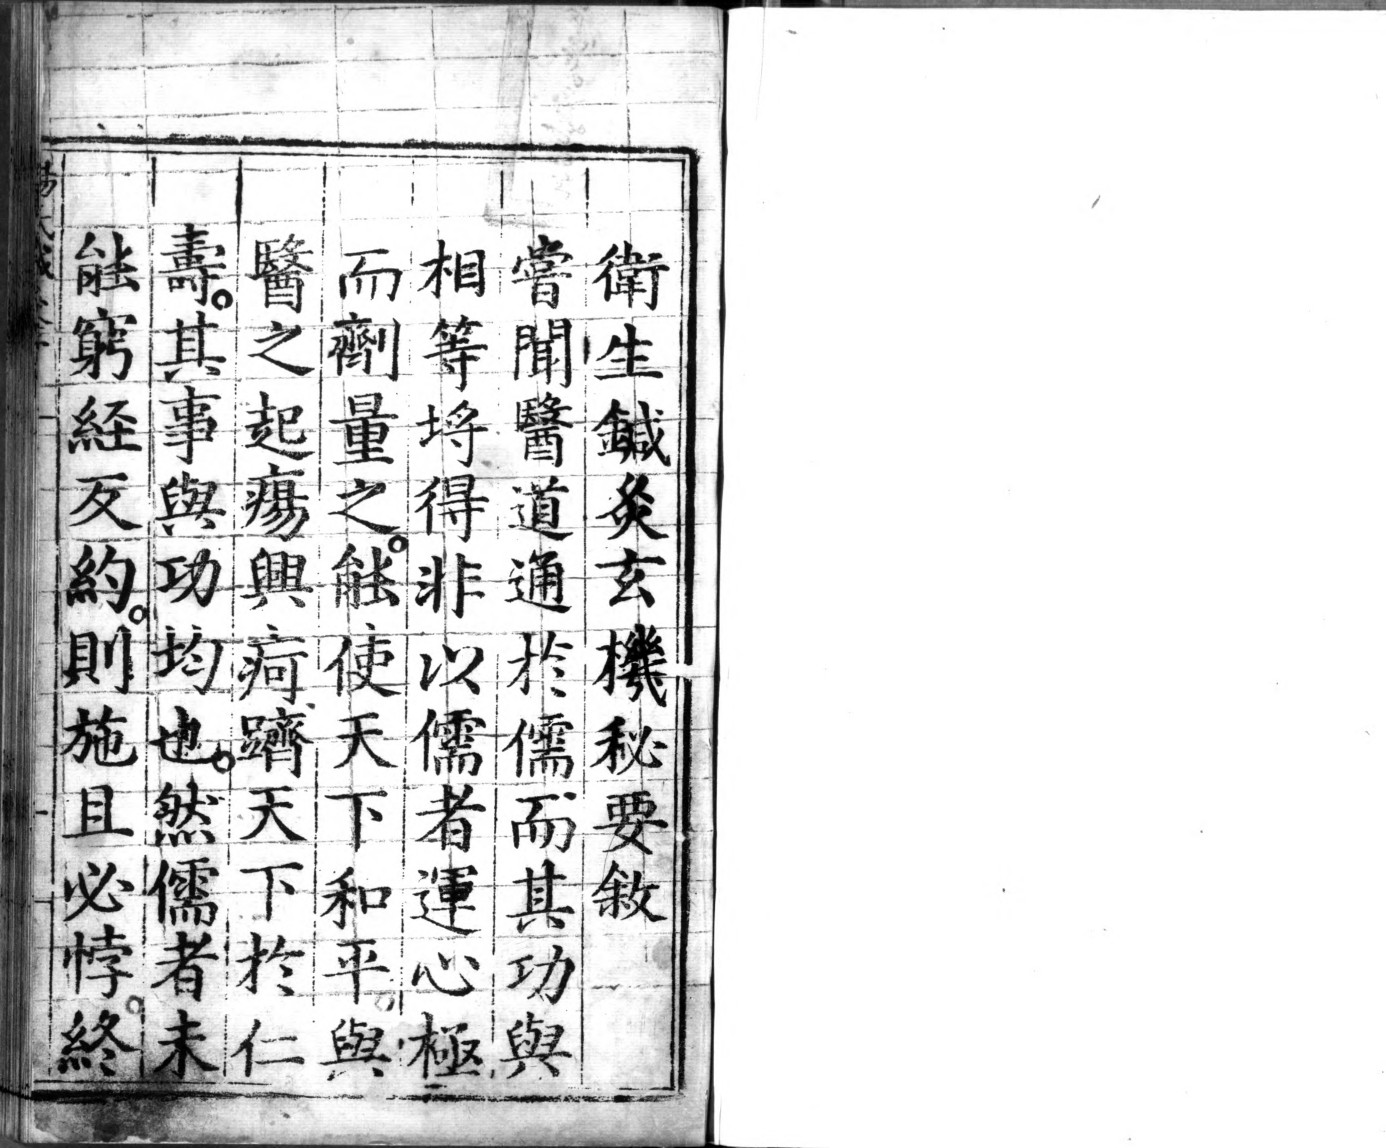 衛生鍼灸玄機秘要敘
嘗聞醫道通於儒而其功與
相等埒得非以儒者運心極
而劑量之。能使天下和平與
醫之起瘍興疴躋天下於仁
壽。其事與功均也。然儒者未
能窮経反約。則施且必悖。終